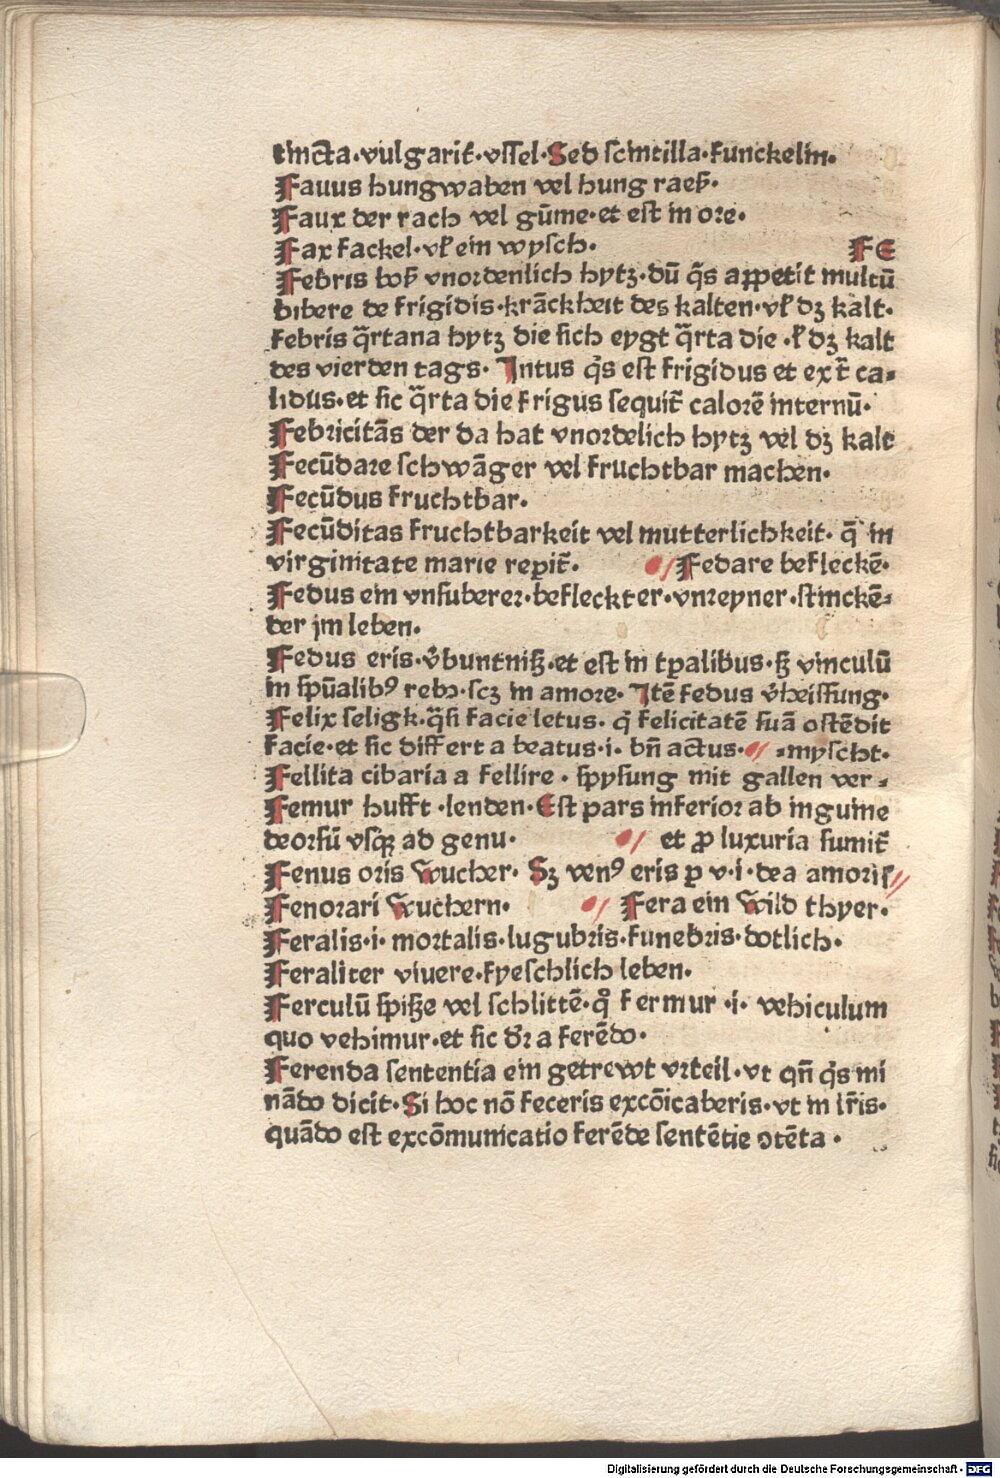 tincta·vulgarit̄·vſſel·Sed ſcintilla·funckelin·
Fauus hungwaben vel hung raeß·
Faux der rach vel gūme·et eſt in ore·
Fax fackel·vl̄ ein wyſch·
FE
Febris boß vnordenlich hytz·dū q̄s appetit multū
bibere de frigidis·krāckheit des kalten·vl̄ dz kalt·
febris q̄rtana hytz die ſich eygt q̄rta die·l̄ dz kalt
des vierden tags· Intus q̄s eſt frigidus et ext̄ ca-
lidus·et ſic q̄rta die frigus ſequit̄ calorē internū·
Febricitās der da hat vnordelich hytz vel dz kalt
Fecūdare ſchwāger vel fruchtbar machen·
Fecūdus fruchtbar·
Fecūditas fruchtbarkeit vel mutterlichkeit· q̄ in
virginitate marie reꝑit̄· Fedare befleckē·
Fedus ein vnſuberer·befleckter·vnreyner·ſtinckē-
der jm leben·
Fedus eris·v̄buntniß·et eſt in tꝑalibus·ſꝫ vinculū
in ſpūalibꝰ reb·ſcꝫ in amore· Itē fedus v̄heiſſung·
Felix ſeligk·q̄ſi facie letus· q̄ felicitatē ſuā oſtēdit
facie·et ſic differt a beatus·i·bn̄ actus· -myſcht·
Fellita cibaria a fellire·ſpyſung mit gallen ver-
Femur hufft·lenden·Eſt pars inferior ab inguine
deorſū vſqꝫ ad genu· et ꝓ luxuria ſumit̄
Fenus oris wucher· Sꝫ venꝰ eris p v·i·dea amoris
Fenorari wuchern· Fera ein wild thyer·
Feralis·i·mortalis·lugubris·funebris·dotlich·
Feraliter viuere·fyeſchlich leben·
Ferculū ſpiße vel ſchlittē·q̊ fermur·i· vehiculum
quo vehimur·et ſic dr̄ a ferēdo·
Ferenda ſententia ein getrewt vrteil·vt qn̄ q̄s mi
nādo dicit·Si hoc nō feceris excōicaberis·vt in lr̄is·
quādo eſt excōmunicatio ferēde ſentētie ꝯtēta·
Digitalisierung gefördert durch die Deutsche Forschungsgemeinschaft - DFG